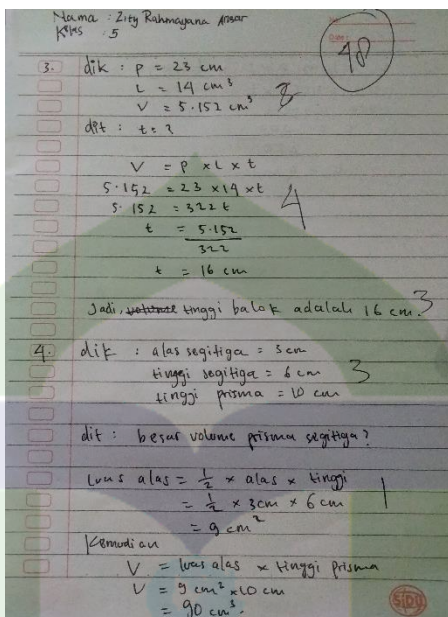 Nama : Zity Rahmayana Ansar
Kelas : 5
48
3. dik : p = 23 cm
L = 14 cm³
V = 5.152 cm³
3
dit : t = ?
V = P x L x t
5.152 = 23 x 14 x t
5.152 = 322 t
4
t = 5.152
322
t = 16 cm
Jadi, tinggi balok adalah 16 cm.
3
4. dik : alas segitiga = 3 cm
tinggi segitiga = 6 cm
3
tinggi prisma = 10 cm
dit : besar volume prisma segitiga?
luas alas = 1/2 x alas x tinggi
= 1/2 x 3cm x 6 cm
1
= 9 cm²
Kemudian
V = luas alas x tinggi prisma
V = 9 cm² x 10 cm
= 90 cm³.
SIDU